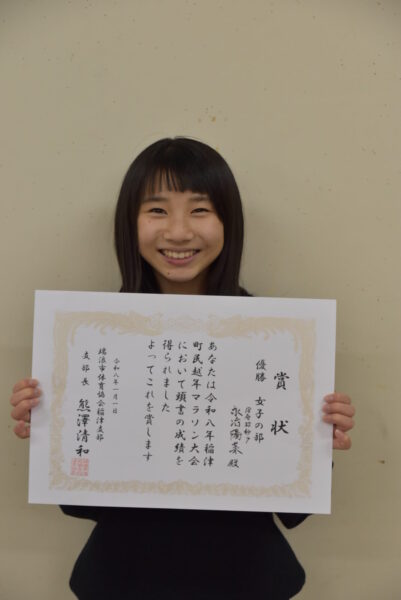 賞状
優勝 女子の部
永治陽菜 殿
あなたは令和八年稲津
町民越年マラソン大会
において頭書の成績を
得られました
よってこれを賞します
令和八年一月一日
瑞浪市体育協会稲津支部
支部長 熊澤清和